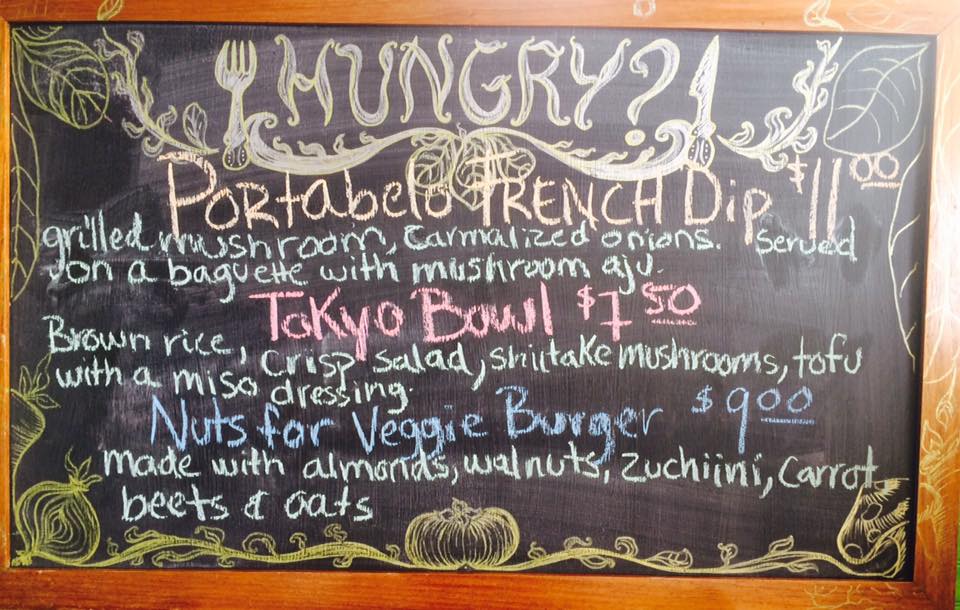 HUNGRY?
Portabelo FRENCH Dip $11.00
grilled mushroom, Carmalized onions. Served
on a baguette with mushroom aju.
Tokyo Bowl $7.50
Brown rice, crisp salad, shiitake mushrooms, tofu
with a miso dressing.
Nuts for Veggie Burger $9.00
made with almonds, walnuts, zuchiini, carrot,
beets & oats